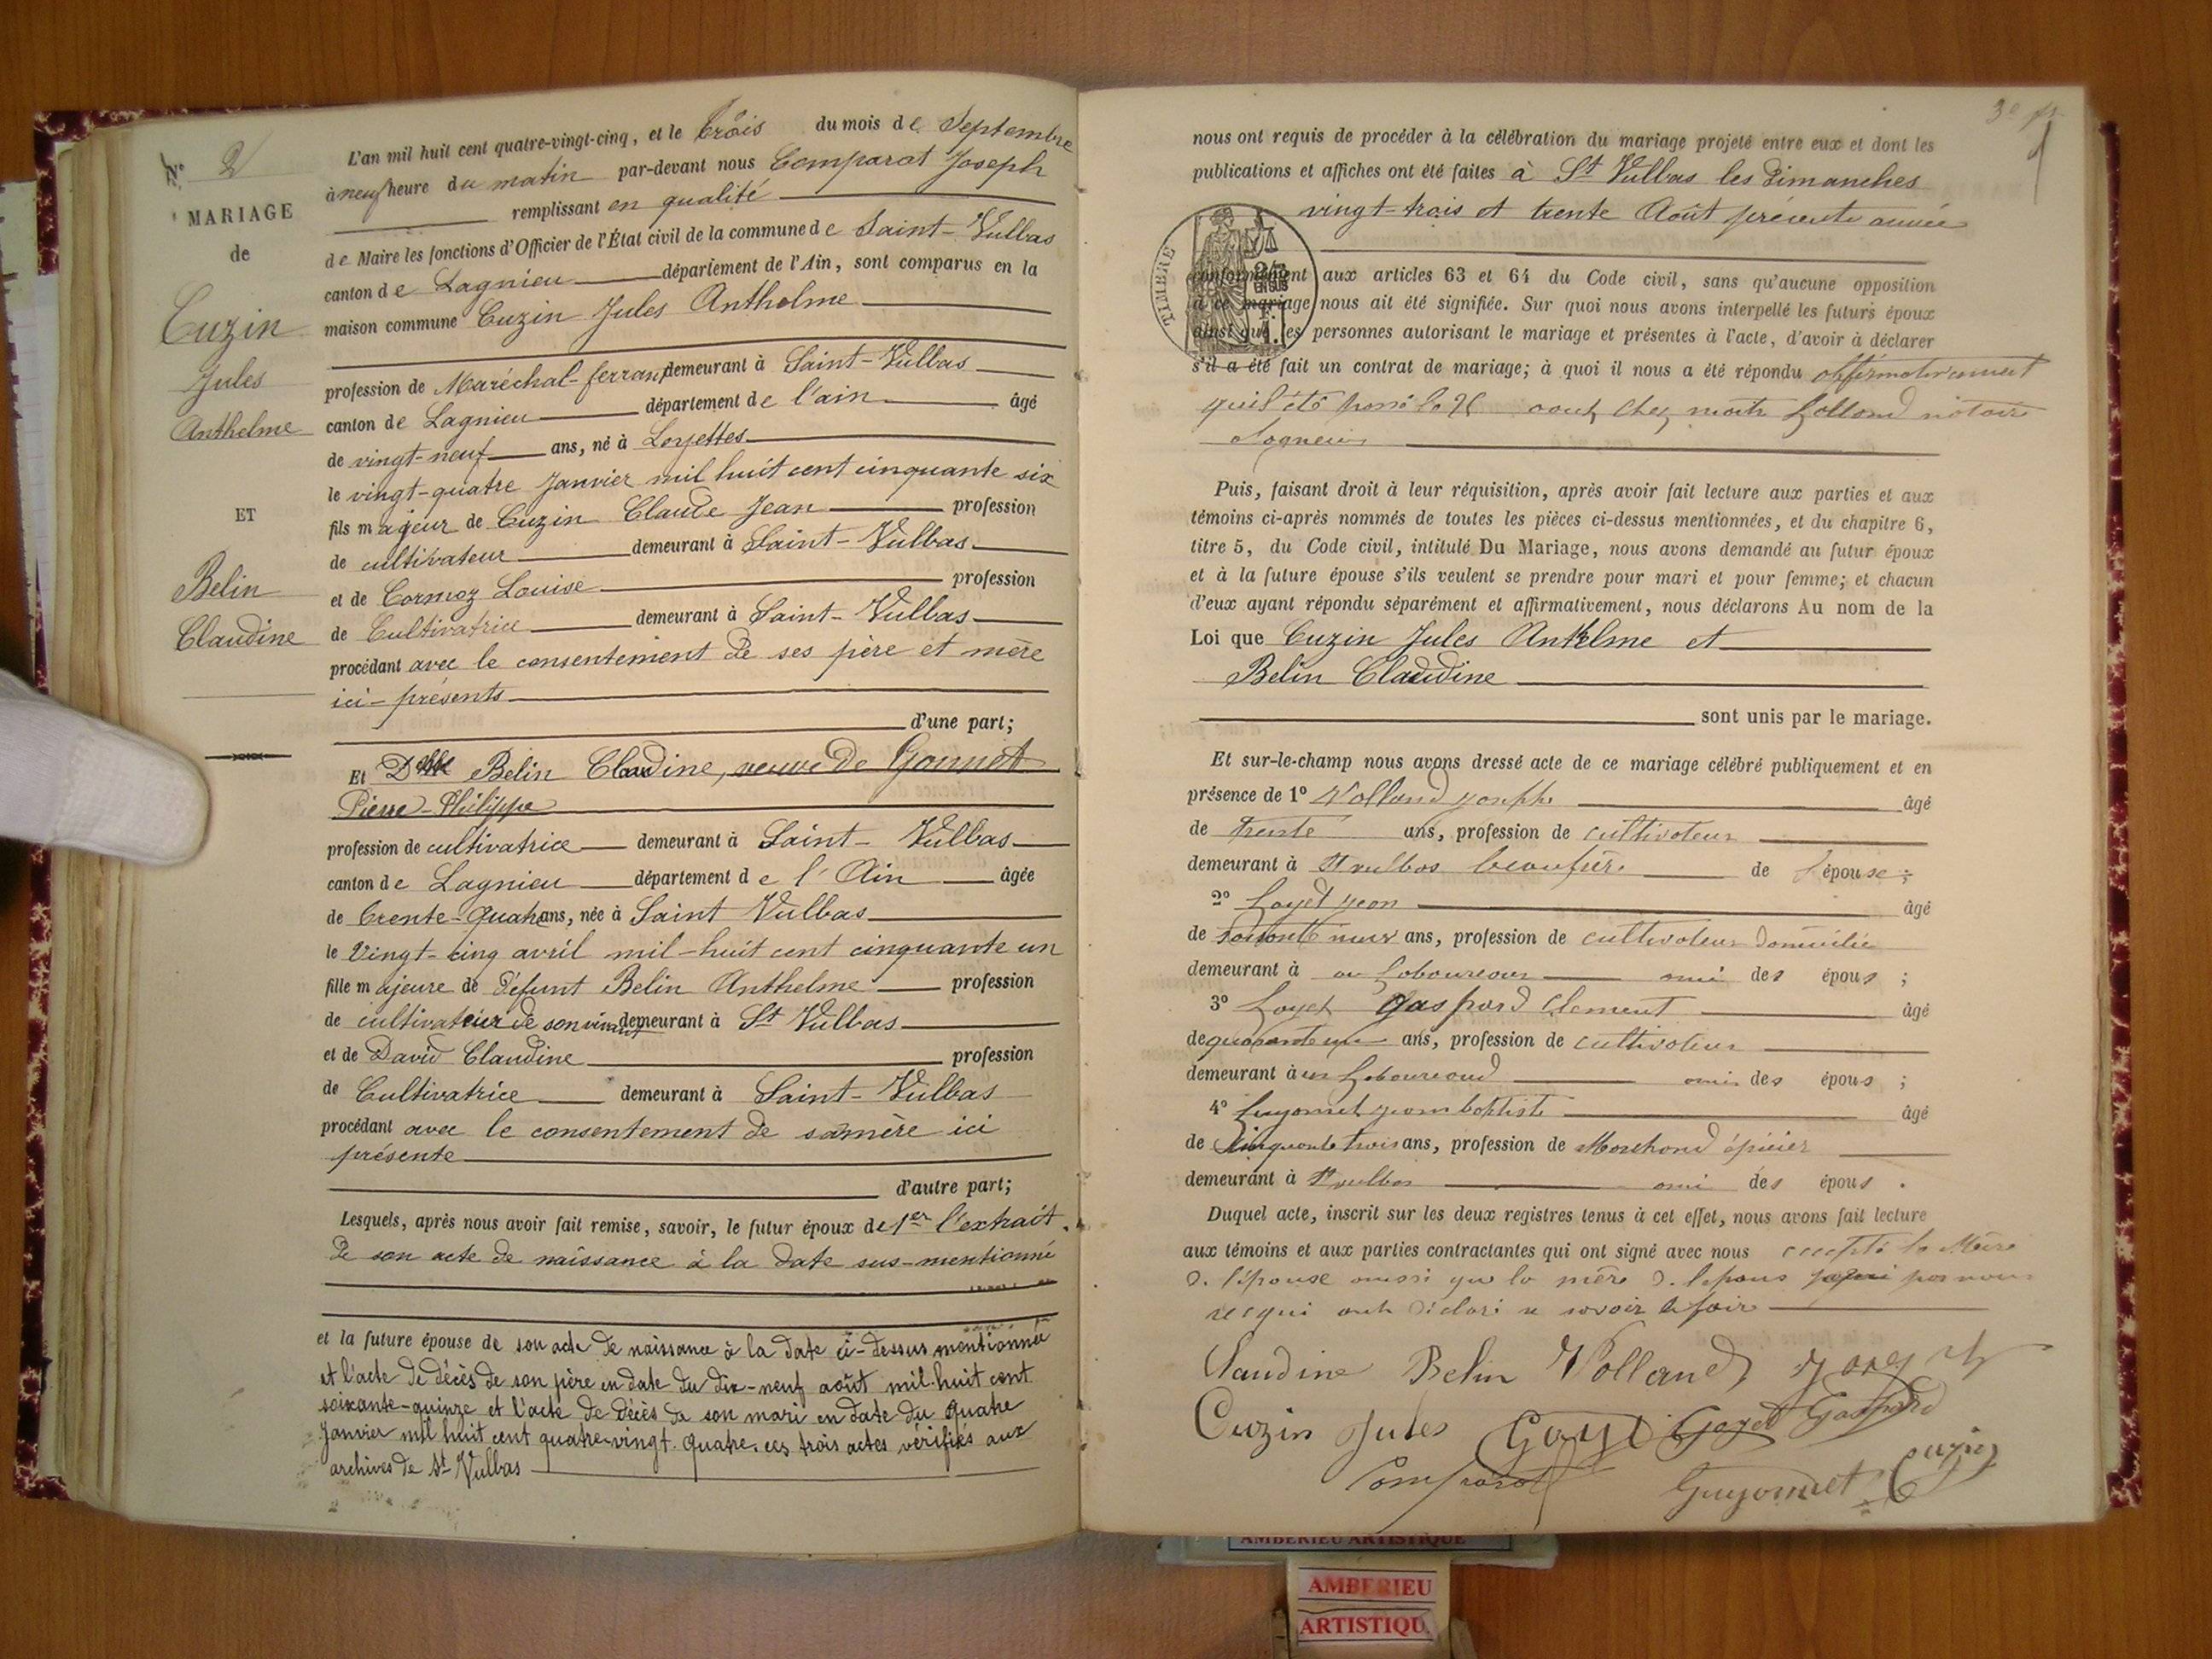 N° 2
MARIAGE
de
Cuzin
Jules
Anthelme
ET
Belin
Claudine
L'an mil huit cent quatre-vingt-cinq, et le trois du mois de Septembre
à neuf heure du matin par-devant nous Comparat Joseph
remplissant en qualité
de Maire les fonctions d'Officier de l'État civil de la commune de Saint-Vulbas
canton de Lagnieu département de l'Ain, sont comparus en la
maison commune Cuzin Jules Anthelme
profession de Maréchal-ferrant demeurant à Saint-Vulbas
canton de Lagnieu département de l'ain âgé
de vingt-neuf ans, né à Loyettes
le vingt-quatre Janvier mil huit cent cinquante six
fils majeur de Cuzin Claude Jean profession
de cultivateur demeurant à Saint-Vulbas
et de Cormoz Louise profession
de Cultivatrice demeurant à Saint-Vulbas
procédant avec le consentement de ses père et mère
ici-présents
d'une part;
Et Delle Belin Claudine, veuve de Gonnet
Pierre-Philippe
profession de cultivatrice demeurant à Saint-Vulbas
canton de Lagnieu département de l'Ain âgée
de trente-quatre ans, née à Saint Vulbas
le vingt-cinq avril mil-huit cent cinquante un
fille majeure de défunt Belin Anthelme profession
de cultivateur de son vivant demeurant à St Vulbas
et de David Claudine profession
de Cultivatrice demeurant à Saint-Vulbas
procédant avec le consentement de sa mère ici
présente
d'autre part;
Lesquels, après nous avoir fait remise, savoir, le futur époux de 1er l'extrait
de son acte de naissance à la date sus-mentionné
et la future épouse de son acte de naissance à la date ci-dessus mentionnée
et l'acte de décès de son père en date du dix-neuf août mil-huit cent
soixante-quinze et l'acte de décès de son mari en date du quatre
Janvier mil huit cent quatre-vingt-quatre. ces trois actes vérifiés aux
archives de St Vulbas
nous ont requis de procéder à la célébration du mariage projeté entre eux et dont les
publications et affiches ont été faites à St Vulbas les dimanches
vingt-trois et trente Août présente année
TIMBRE
conformément aux articles 63 et 64 du Code civil, sans qu'aucune opposition
à ce mariage nous ait été signifiée. Sur quoi nous avons interpellé les futurs époux
ainsi que les personnes autorisant le mariage et présentes à l'acte, d'avoir à déclarer
s'il a été fait un contrat de mariage; à quoi il nous a été répondu affirmativement
quil été août chez notaire
Lagnieu
Puis, faisant droit à leur réquisition, après avoir fait lecture aux parties et aux
témoins ci-après nommés de toutes les pièces ci-dessus mentionnées, et du chapitre 6,
titre 5, du Code civil, intitulé Du Mariage, nous avons demandé au futur époux
et à la future épouse s'ils veulent se prendre pour mari et pour femme; et chacun
d'eux ayant répondu séparément et affirmativement, nous déclarons Au nom de la
Loi que Cuzin Jules Anthelme et
Belin Claudine
sont unis par le mariage.
Et sur-le-champ nous avons dressé acte de ce mariage célébré publiquement et en
présence de 1° Volland Joseph âgé
de trente ans, profession de cultivateur
demeurant à St vulbas beaufrère de l'épouse;
2° jean âgé
de ans, profession de cultivateur domicilié
demeurant à ami des épous;
3° gaspard Clement âgé
de quarante un ans, profession de cultivateur
demeurant à ami des épous;
4° Guyonnet jean baptiste âgé
de cinquante trois ans, profession de Marchand épicier
demeurant à St vulbas ami des épous.
Duquel acte, inscrit sur les deux registres tenus à cet effet, nous avons fait lecture
aux témoins et aux parties contractantes qui ont signé avec nous excepté la Mère
de l'épouse aussi que la mère de l'epous par nous
requi ont déclaré ne savoir le faire
Claudine Belin Volland Joseph
Cuzin Jules Goyet Goyet Gaspard
Comparat Guyonnet Cuzin
AMBERIEU ARTISTIQUE
AMBERIEU
ARTISTIQU